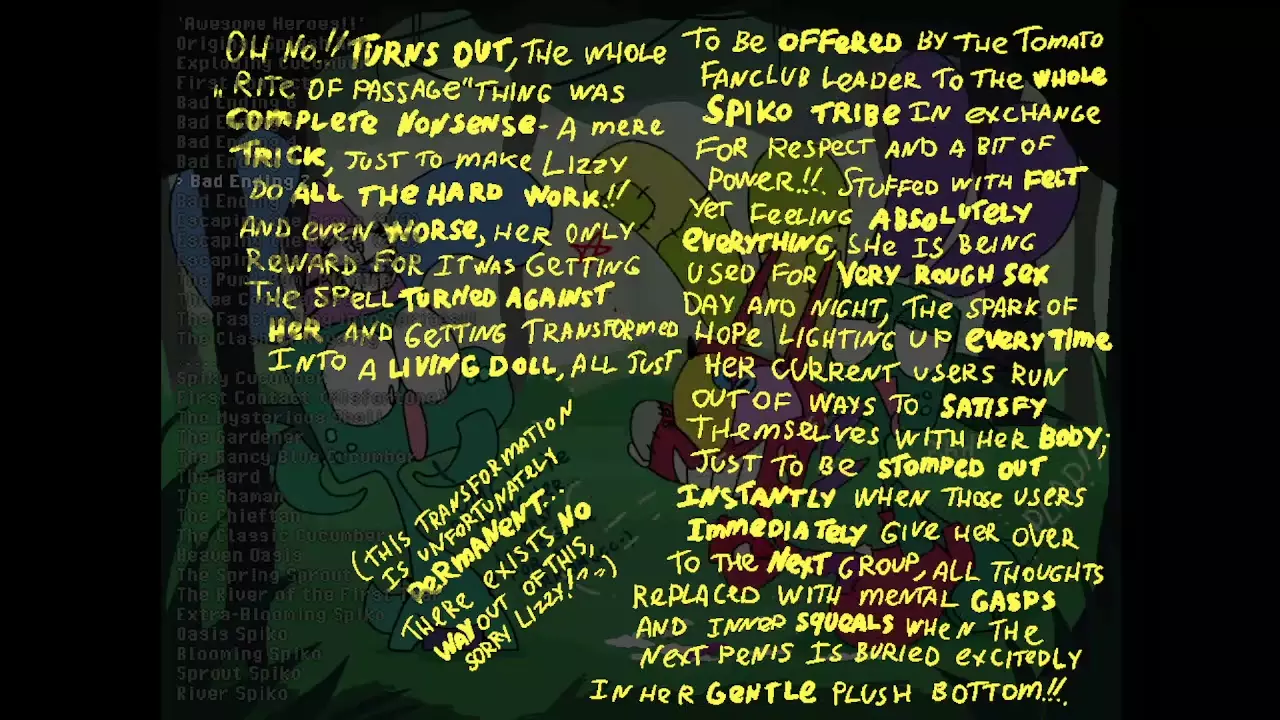 'Awesome Heroes!!'
Bad Ending
OH NO!! TURNS OUT, THE WHOLE
„RITE OF PASSAGE" THING WAS
COMPLETE NONSENSE - A MERE
TRICK, JUST TO MAKE LIZZY
DO ALL THE HARD WORK!!
AND EVEN WORSE, HER ONLY
REWARD FOR IT WAS GETTING
THE SPELL TURNED AGAINST
HER AND GETTING TRANSFORMED
INTO A LIVING DOLL, ALL JUST
TO BE OFFERED BY THE TOMATO
FANCLUB LEADER TO THE WHOLE
SPIKO TRIBE IN EXCHANGE
FOR RESPECT AND A BIT OF
POWER!!. STUFFED WITH FELT
YET FEELING ABSOLUTELY
EVERYTHING, SHE IS BEING
USED FOR VERY ROUGH SEX
DAY AND NIGHT, THE SPARK OF
HOPE LIGHTING UP EVERYTIME
HER CURRENT USERS RUN
OUT OF WAYS TO SATISFY
THEMSELVES WITH HER BODY;
JUST TO BE STOMPED OUT
INSTANTLY WHEN THOSE USERS
IMMEDIATELY GIVE HER OVER
TO THE NEXT GROUP, ALL THOUGHTS
REPLACED WITH MENTAL GASPS
AND INNER SQUEALS WHEN THE
NEXT PENIS IS BURIED EXCITEDLY
IN HER GENTLE PLUSH BOTTOM!!.
(THIS TRANSFORMATION
IS UNFORTUNATELY
PERMANENT...
THERE EXISTS NO
WAY OUT OF THIS,
SORRY LIZZY! ^-^)
Spiky Cucumber
First Contact
The Mysterious
The Gardener
The Fancy Blue Cucumber
The Bard
The Shaman
The Chieftan
The Classic Cucumber
Heaven Oasis
The Spring Sprout
The River of the First
Extra-Blooming Spiko
Oasis Spiko
Blooming Spiko
Sprout Spiko
River Spiko